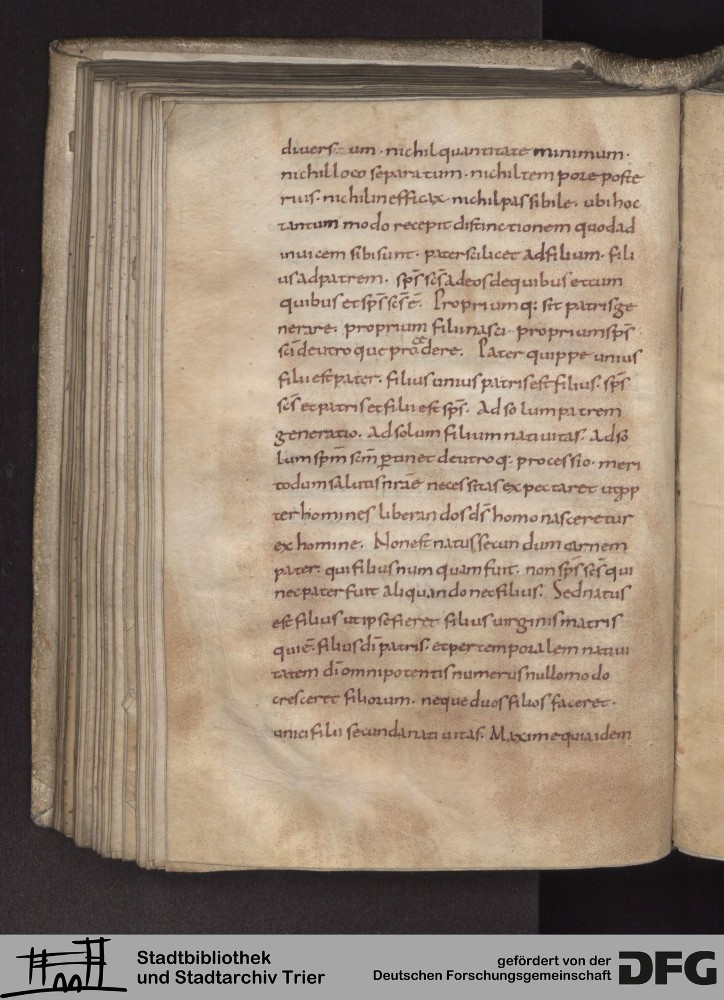 diuers um · nichil quantitate minimum ·
nichil loco separatum · nichil tempore poste
rius · nichil inefficax nichil passibile · ubi hoc
tantum modo recepit distinctionem quod ad
inuicem sibi sunt · pater scilicet ad filium · fili
us ad patrem · sp̄s sc̄s ad eos de quibus et cum
quibus et sp̄s sc̄s ē · Proprium q: sit patris ge
nerare · proprium filii nasci · proprium sp̄s
sc̄i de utroque procedere · Pater quippe unius
filii est pater · filius unius patris est filius · sp̄s
sc̄s et patris et filii est sp̄s · Ad solum patrem
generatio · Ad solum filium natiuitas · Ad so
lum sp̄m sc̄m ꝑtinet de utroq: processio · meri
to dum salutis nr̄ae necessitas expectaret ut ꝓp
ter homines liberandos ds̄ homo nasceretur
ex homine · Non est natus secundum carnem
pater · qui filius numquam fuit · non sp̄s sc̄s qui
nec pater fuit aliquando nec filius · Sed natus
est filius ut ipse fieret filius uirginis matris
qui ē filius dī patris · et per temporalem natiui
tatem dī omnipotentis numerus nullo modo
cresceret filiorum · neque duos filios faceret ·
unici filii secunda natiuitas · Maxime quia idem
Stadtbibliothek
und Stadtarchiv Trier
gefördert von der
Deutschen Forschungsgemeinschaft
DFG